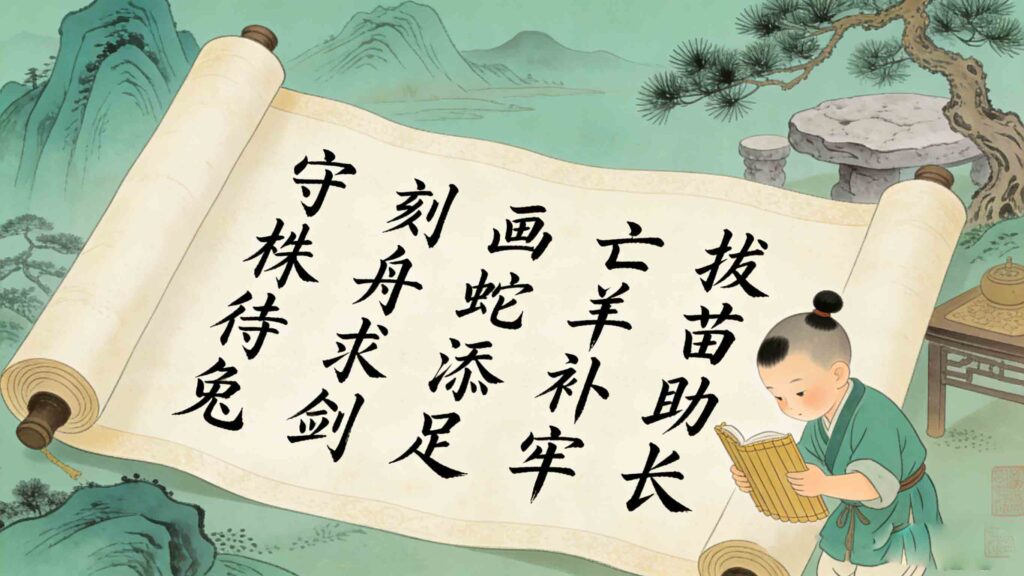 拔苗助长
亡羊补牢
画蛇添足
刻舟求剑
守株待兔